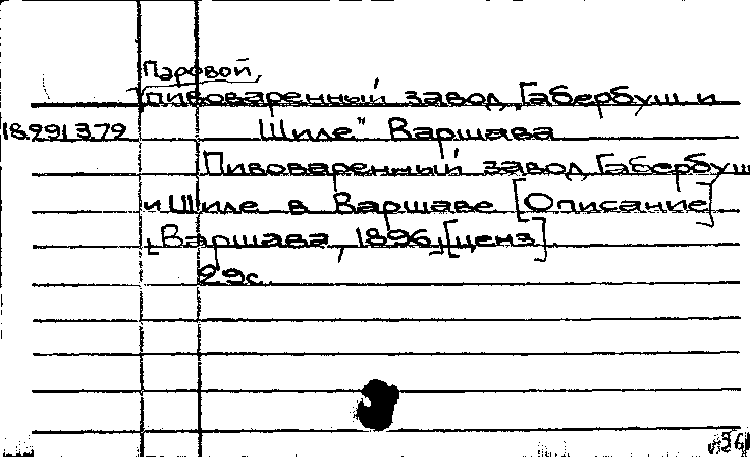 Паровой,
пивоваренный завод „Габербуш и
18.291.3.79 Шиле" Варшава
Пивоваренный завод Габербуш
и Шиле в Варшаве [Описание]
[Варшава, 1896] [ценз].
29с.